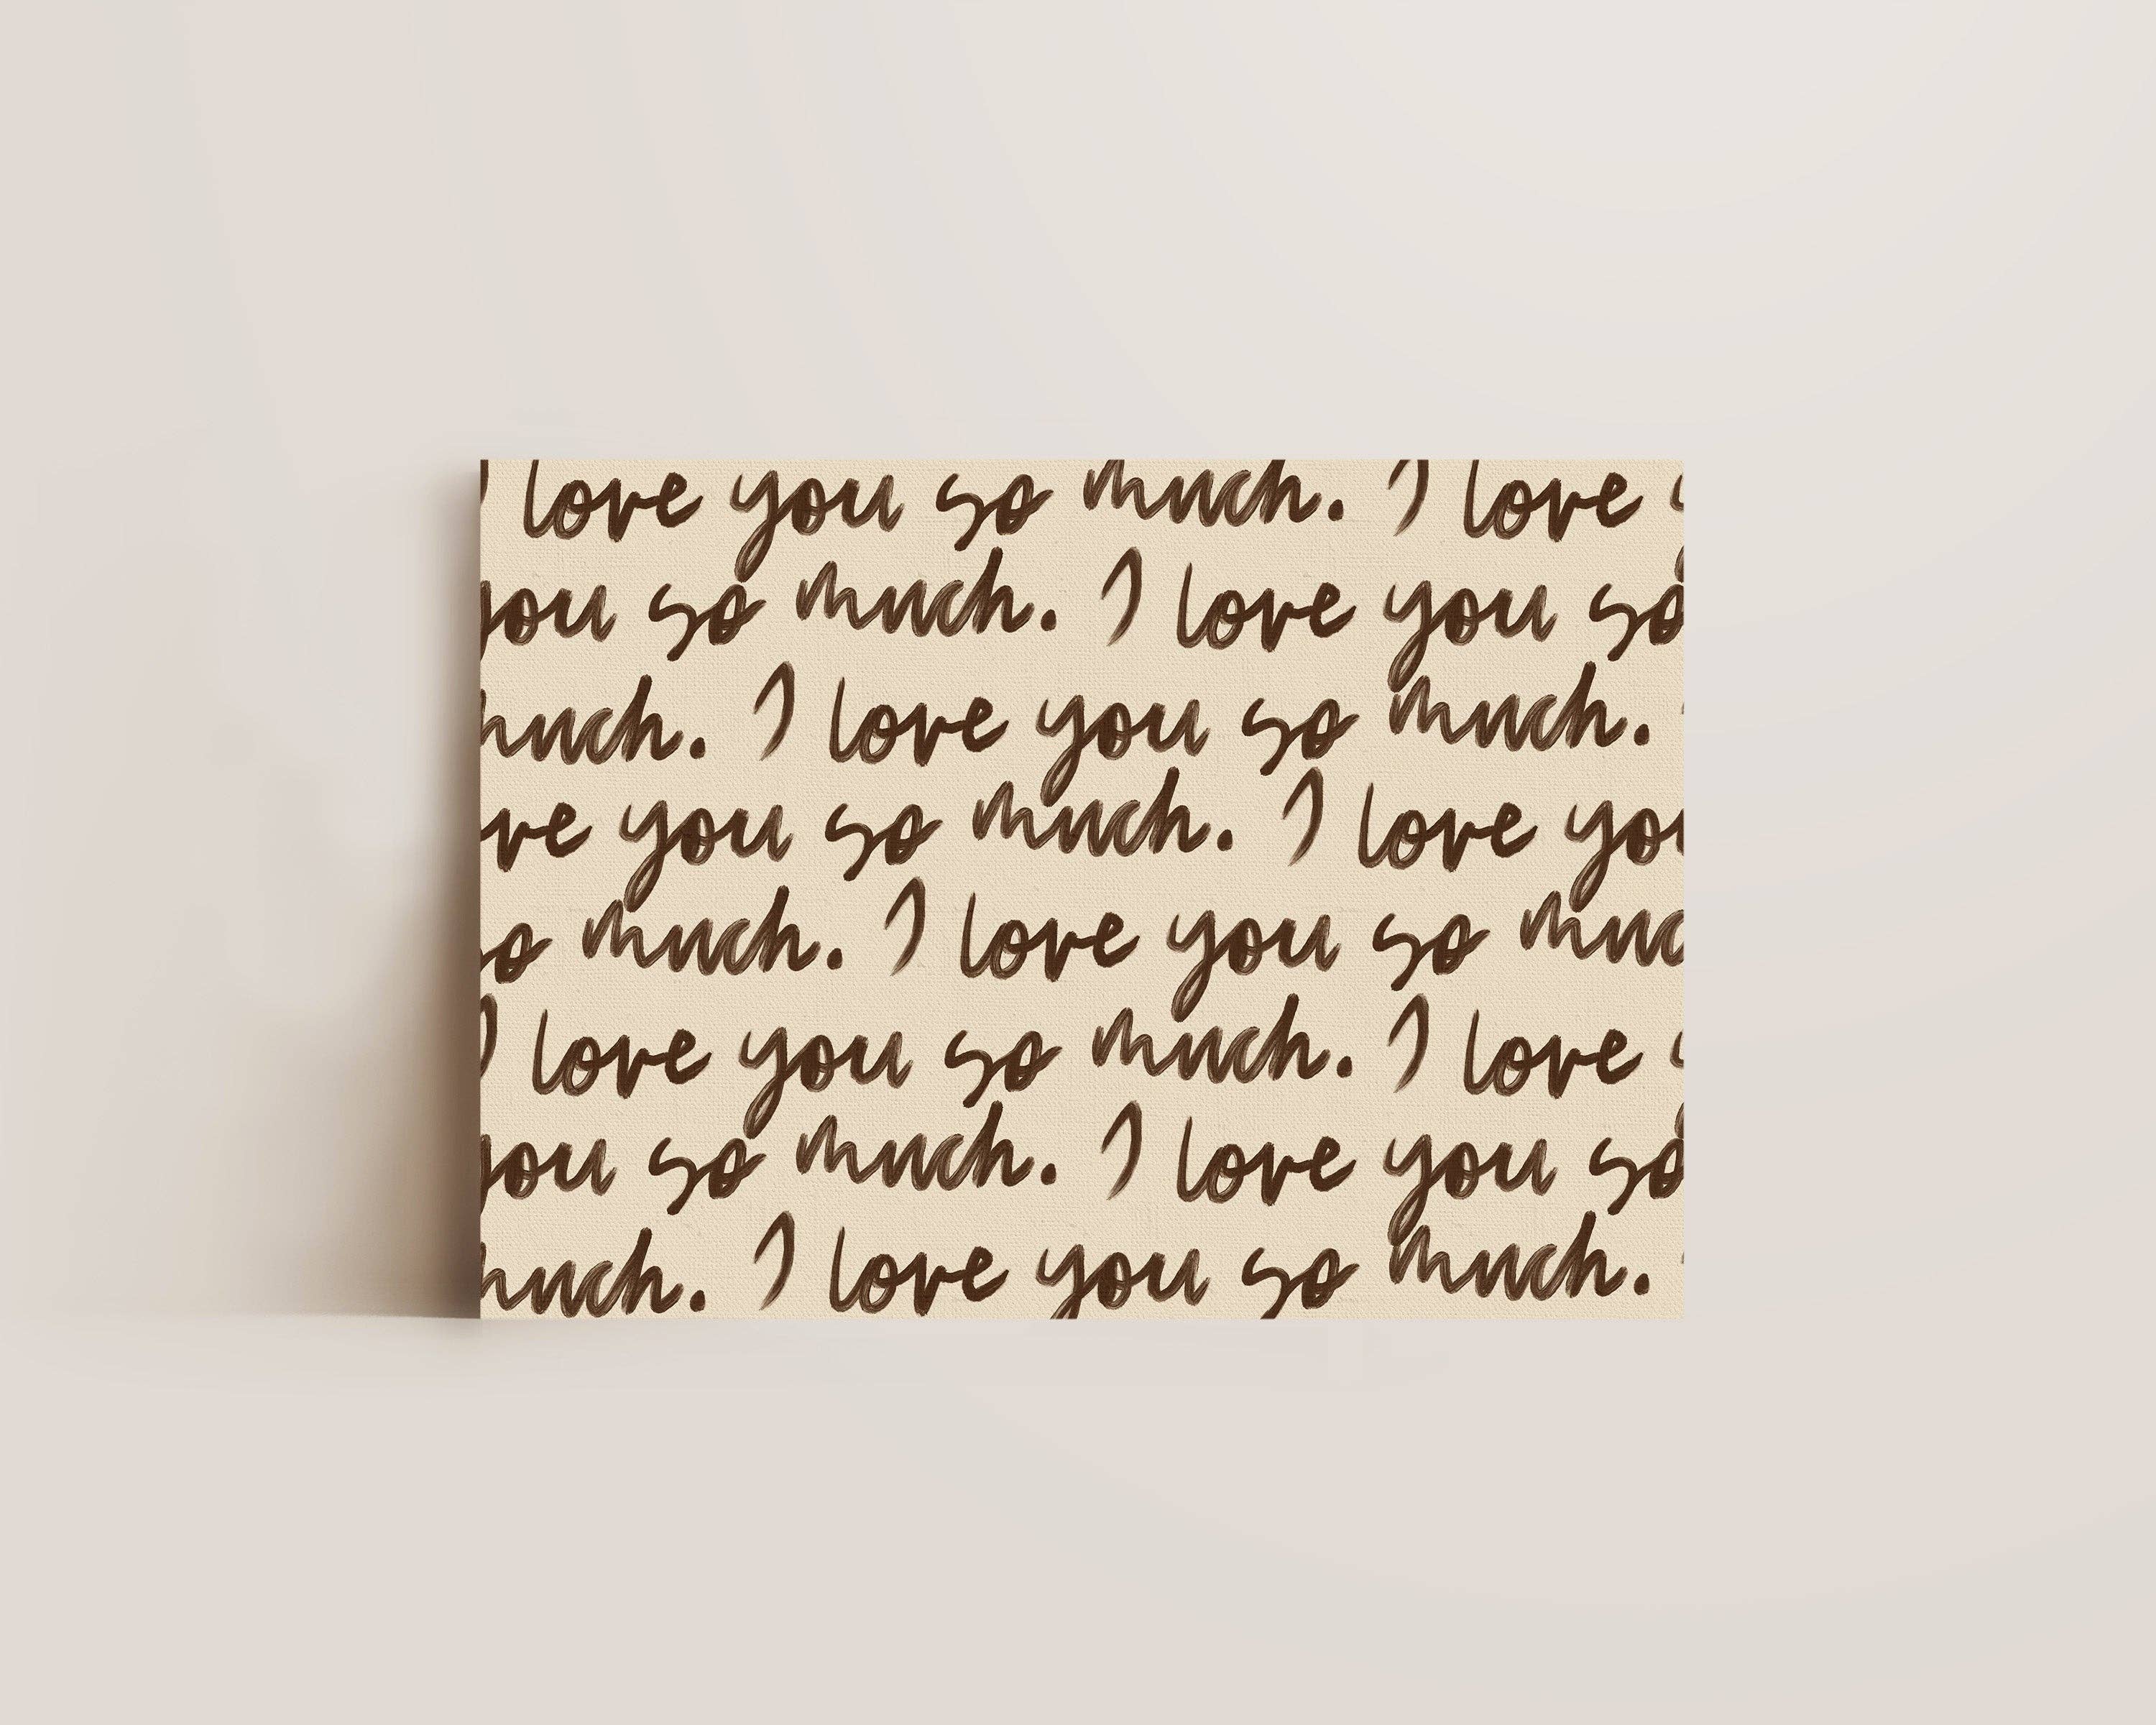 I love you so much. I love
you so much. I love you so
much. I love you so much.
ve you so much. I love you
so much. I love you so muc
I love you so much. I love
you so much. I love you so
much. I love you so much.